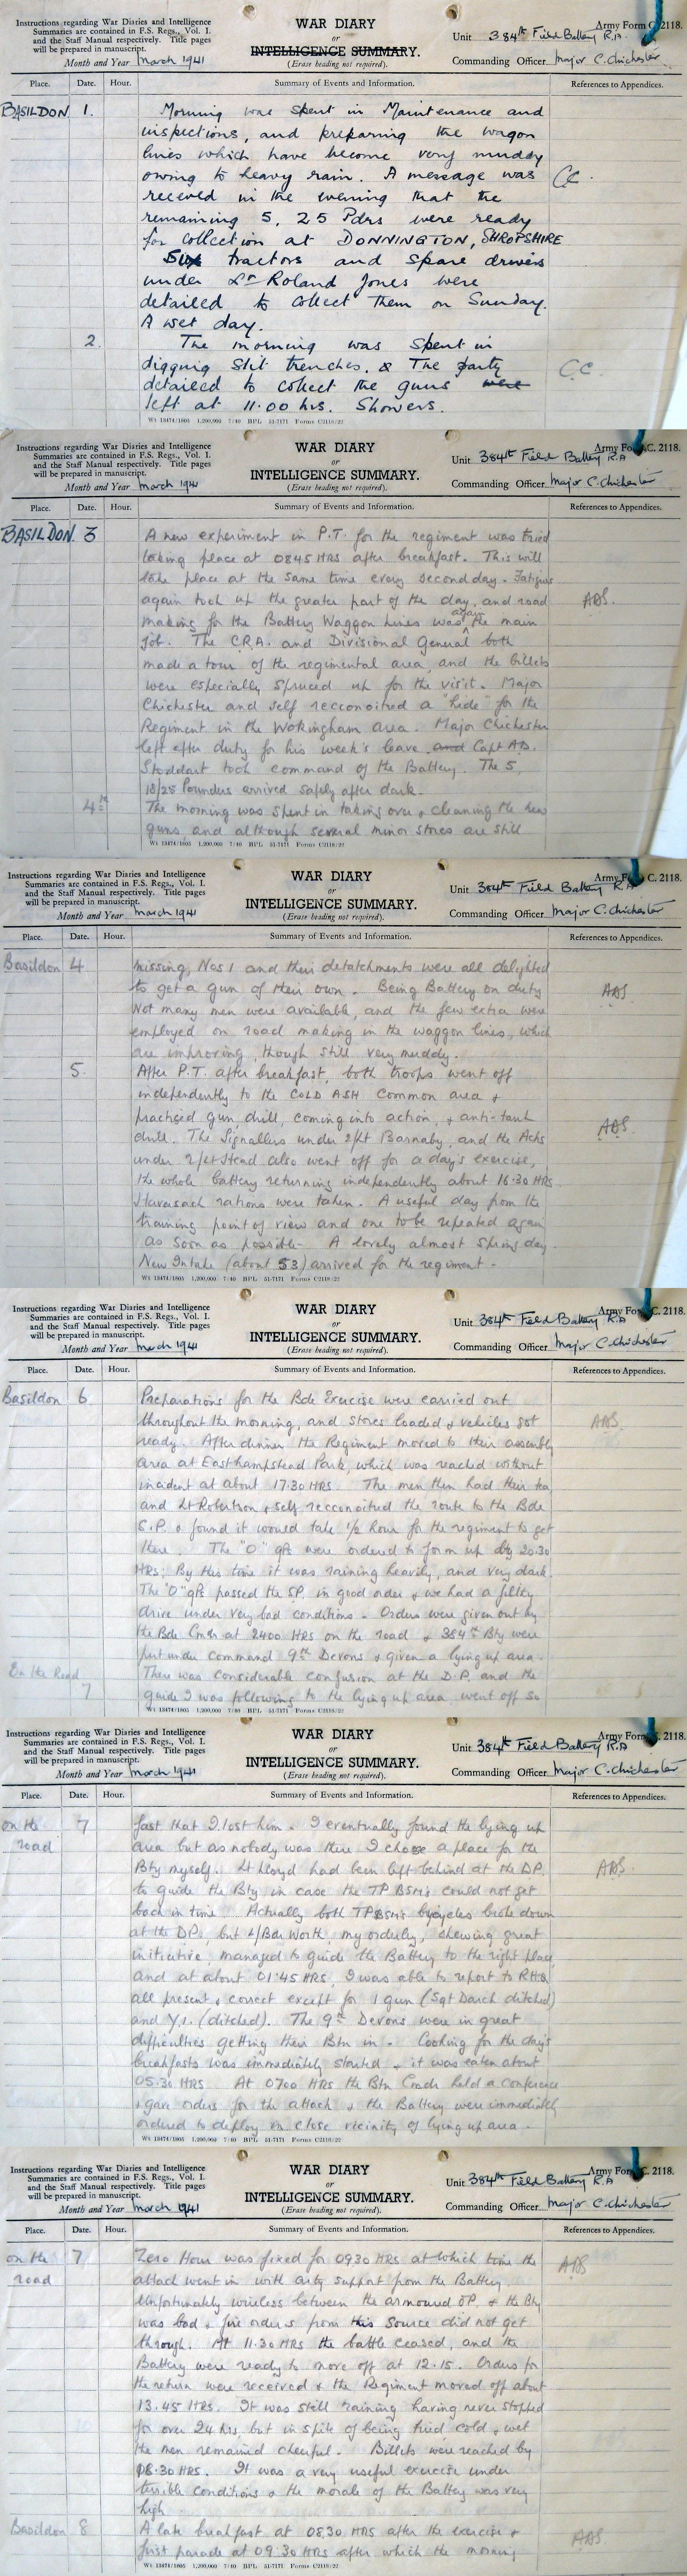 Instructions regarding War Diaries and Intelligence
Summaries are contained in F.S. Regs., Vol. I.
and the Staff Manual respectively. Title pages
will be prepared in manuscript.
Month and Year March 1941
WAR DIARY
or
INTELLIGENCE SUMMARY.
(Erase heading not required).
Army Form C. 2118.
Unit 384th Field Battery R.A.
Commanding Officer Major C. Chichester
Place. Date. Hour. Summary of Events and Information. References to Appendices.
BASILDON 1. Morning was spent in Maintenance and
inspections, and preparing the wagon
lines which have become very muddy
owing to heavy rain. A message was CC.
received in the evening that the
remaining 5, 25 Pdrs were ready
for collection at DONNINGTON, SHROPSHIRE
Six tractors and spare drivers
under Lt Roland Jones were
detailed to collect them on Sunday.
A wet day.
2. The morning was spent in
digging slit trenches. & The party C.C.
detailed to collect the guns were
left at 11.00 hrs. Showers.
Wt 13474/1805 1,200,000 7/40 BPL 51-7171 Forms C2118/22
Instructions regarding War Diaries and Intelligence
Summaries are contained in F.S. Regs., Vol. I.
and the Staff Manual respectively. Title pages
will be prepared in manuscript.
Month and Year March 1941
WAR DIARY
or
INTELLIGENCE SUMMARY.
(Erase heading not required).
Army Form C. 2118.
Unit 384th Field Battery R.A
Commanding Officer Major C. Chichester
Place. Date. Hour. Summary of Events and Information. References to Appendices.
BASILDON. 3 A new experiment in P.T. for the regiment was tried
taking place at 0845 HRS after breakfast. This will
take place at the same time every second day. Fatigues
again took up the greater part of the day, and road ABS.
making for the Battery Waggon Lines was again the main
job. The C.R.A. and Divisional General both
made a tour of the regimental area, and the billets
were especially spruced up for the visit. Major
Chichester and self recconoitred a "hide" for the
Regiment in the Wokingham area. Major Chichester
left after duty for his week's leave and Capt A.B.
Stoddart took command of the Battery. The 5,
18/25 Pounders arrived safely after dark.
4th The morning was spent in taking over & cleaning the new
guns, and although several minor stores are still
Wt 13474/1805 1,200,000 7/40 BPL 51-7171 Forms C2118/22
Instructions regarding War Diaries and Intelligence
Summaries are contained in F.S. Regs., Vol. I.
and the Staff Manual respectively. Title pages
will be prepared in manuscript.
Month and Year March 1941
WAR DIARY
or
INTELLIGENCE SUMMARY.
(Erase heading not required).
Army Form C. 2118.
Unit 384th Field Battery R.A
Commanding Officer Major C. Chichester
Place. Date. Hour. Summary of Events and Information. References to Appendices.
Basildon 4 missing, Nos 1 and their detatchments were all delighted
to get a gun of their own. Being Battery on duty ABS
not many men were available, and the few extra were
employed on road making in the waggon lines, which
are improving, though still very muddy.
5. After P.T. after breakfast, both troops went off
independently to the COLD ASH Common area &
practised gun drill, coming into action, & anti-tank ABS.
drill. The Signallers under 2/Lt Barnaby, and the Acks
under 2/Lt Stead also went off for a day's exercise,
the whole battery returning independently about 16.30 HRS.
Haversack rations were taken. A useful day from the
training point of view and one to be repeated again
as soon as possible. A lovely almost spring day.
New Intake (about 53) arrived for the regiment.
Wt 13474/1805 1,200,000 7/40 BPL 51-7171 Forms C2118/22
Instructions regarding War Diaries and Intelligence
Summaries are contained in F.S. Regs., Vol. I.
and the Staff Manual respectively. Title pages
will be prepared in manuscript.
Month and Year March 1941
WAR DIARY
or
INTELLIGENCE SUMMARY.
(Erase heading not required).
Army Form C. 2118.
Unit 384th Field Battery R.A
Commanding Officer Major C. Chichester
Place. Date. Hour. Summary of Events and Information. References to Appendices.
Basildon 6 Preparations for the Bde Exercise were carried out
throughout the morning, and stores loaded & vehicles got ABS
ready. After dinner the Regiment moved to their assembly
area at Easthampstead Park, which was reached without
incident at about 17.30 HRS. The men then had their tea
and Lt Robertson & self recconoitred the route to the Bde
S.P. & found it would take ½ hour for the regiment to get
there. The "O" gps were ordered to form up by 20.30
HRS: By this time it was raining heavily, and very dark.
The "O" gps passed the SP. in good order & we had a filthy
drive under very bad conditions. Orders were given out by
the Bde Cmdr at 2400 HRS on the road & 384th Bty were
put under command 9th Devons & given a lying up area.
En the Road There was considerable confusion at the D.P. and the
7 guide I was following to the lying up area went off so
Wt 13474/1805 1,200,000 7/40 BPL 51-7171 Forms C2118/22
Instructions regarding War Diaries and Intelligence
Summaries are contained in F.S. Regs., Vol. I.
and the Staff Manual respectively. Title pages
will be prepared in manuscript.
Month and Year March 1941
WAR DIARY
or
INTELLIGENCE SUMMARY.
(Erase heading not required).
Army Form C. 2118.
Unit 384th Field Battery R.A
Commanding Officer Major C. Chichester
Place. Date. Hour. Summary of Events and Information. References to Appendices.
on the 7 fast that I lost him. I eventually found the lying up
road area but as nobody was there I chose a place for the
Bty myself. Lt Lloyd had been left behind at the DP. ABS.
to guide the Bty in case the TP BSM's could not get
back in time. Actually both TPBSM's bycycles broke down
at the DP., but L/Bdr Worth, my orderly, shewing great
initiative, managed to guide the Battery to the right place,
and at about 01.45 HRS, I was able to report to RHQ
all present & correct except for 1 gun (Sgt Darch ditched)
and Y.1. (ditched). The 9th Devons were in great
difficulties getting their Btn in. Cooking for the day's
breakfasts was immediately started & it was eaten about
05.30 HRS At 0700 HRS the Btn Cmdr held a conference
& gave orders for the attack & the Battery were immediately
ordered to deploy in close vicinity of lying up area.
Wt 13474/1805 1,200,000 7/40 BPL 51-7171 Forms C2118/22
Instructions regarding War Diaries and Intelligence
Summaries are contained in F.S. Regs., Vol. I.
and the Staff Manual respectively. Title pages
will be prepared in manuscript.
Month and Year March 1941
WAR DIARY
or
INTELLIGENCE SUMMARY.
(Erase heading not required).
Army Form C. 2118.
Unit 384th Field Battery R.A
Commanding Officer Major C. Chichester
Place. Date. Hour. Summary of Events and Information. References to Appendices.
on the 7 Zero Hour was fixed for 0930 HRS at which time the ABS
road attack went in with arty support from the Battery.
Unfortunately wireless between the armoured OP. & the Bty
was bad & fire orders from this source did not get
through. At 11.30 HRS the battle ceased, and the
Battery were ready to move off at 12.15. Orders for
the return were received & the Regiment moved off about
13.45 HRS. It was still raining having never stopped
for over 24 hrs, but in spite of being tired cold & wet
the men remained cheerful. Billets were reached by
18.30 HRS. It was a very useful exercise under
terrible conditions & the morale of the Battery was very
high.
Basildon 8 A late breakfast at 08.30 HRS after the exercise & ABS.
first parade at 09.30 HRS after which the morning
Wt 13474/1805 1,200,000 7/40 BPL 51-7171 Forms C2118/22